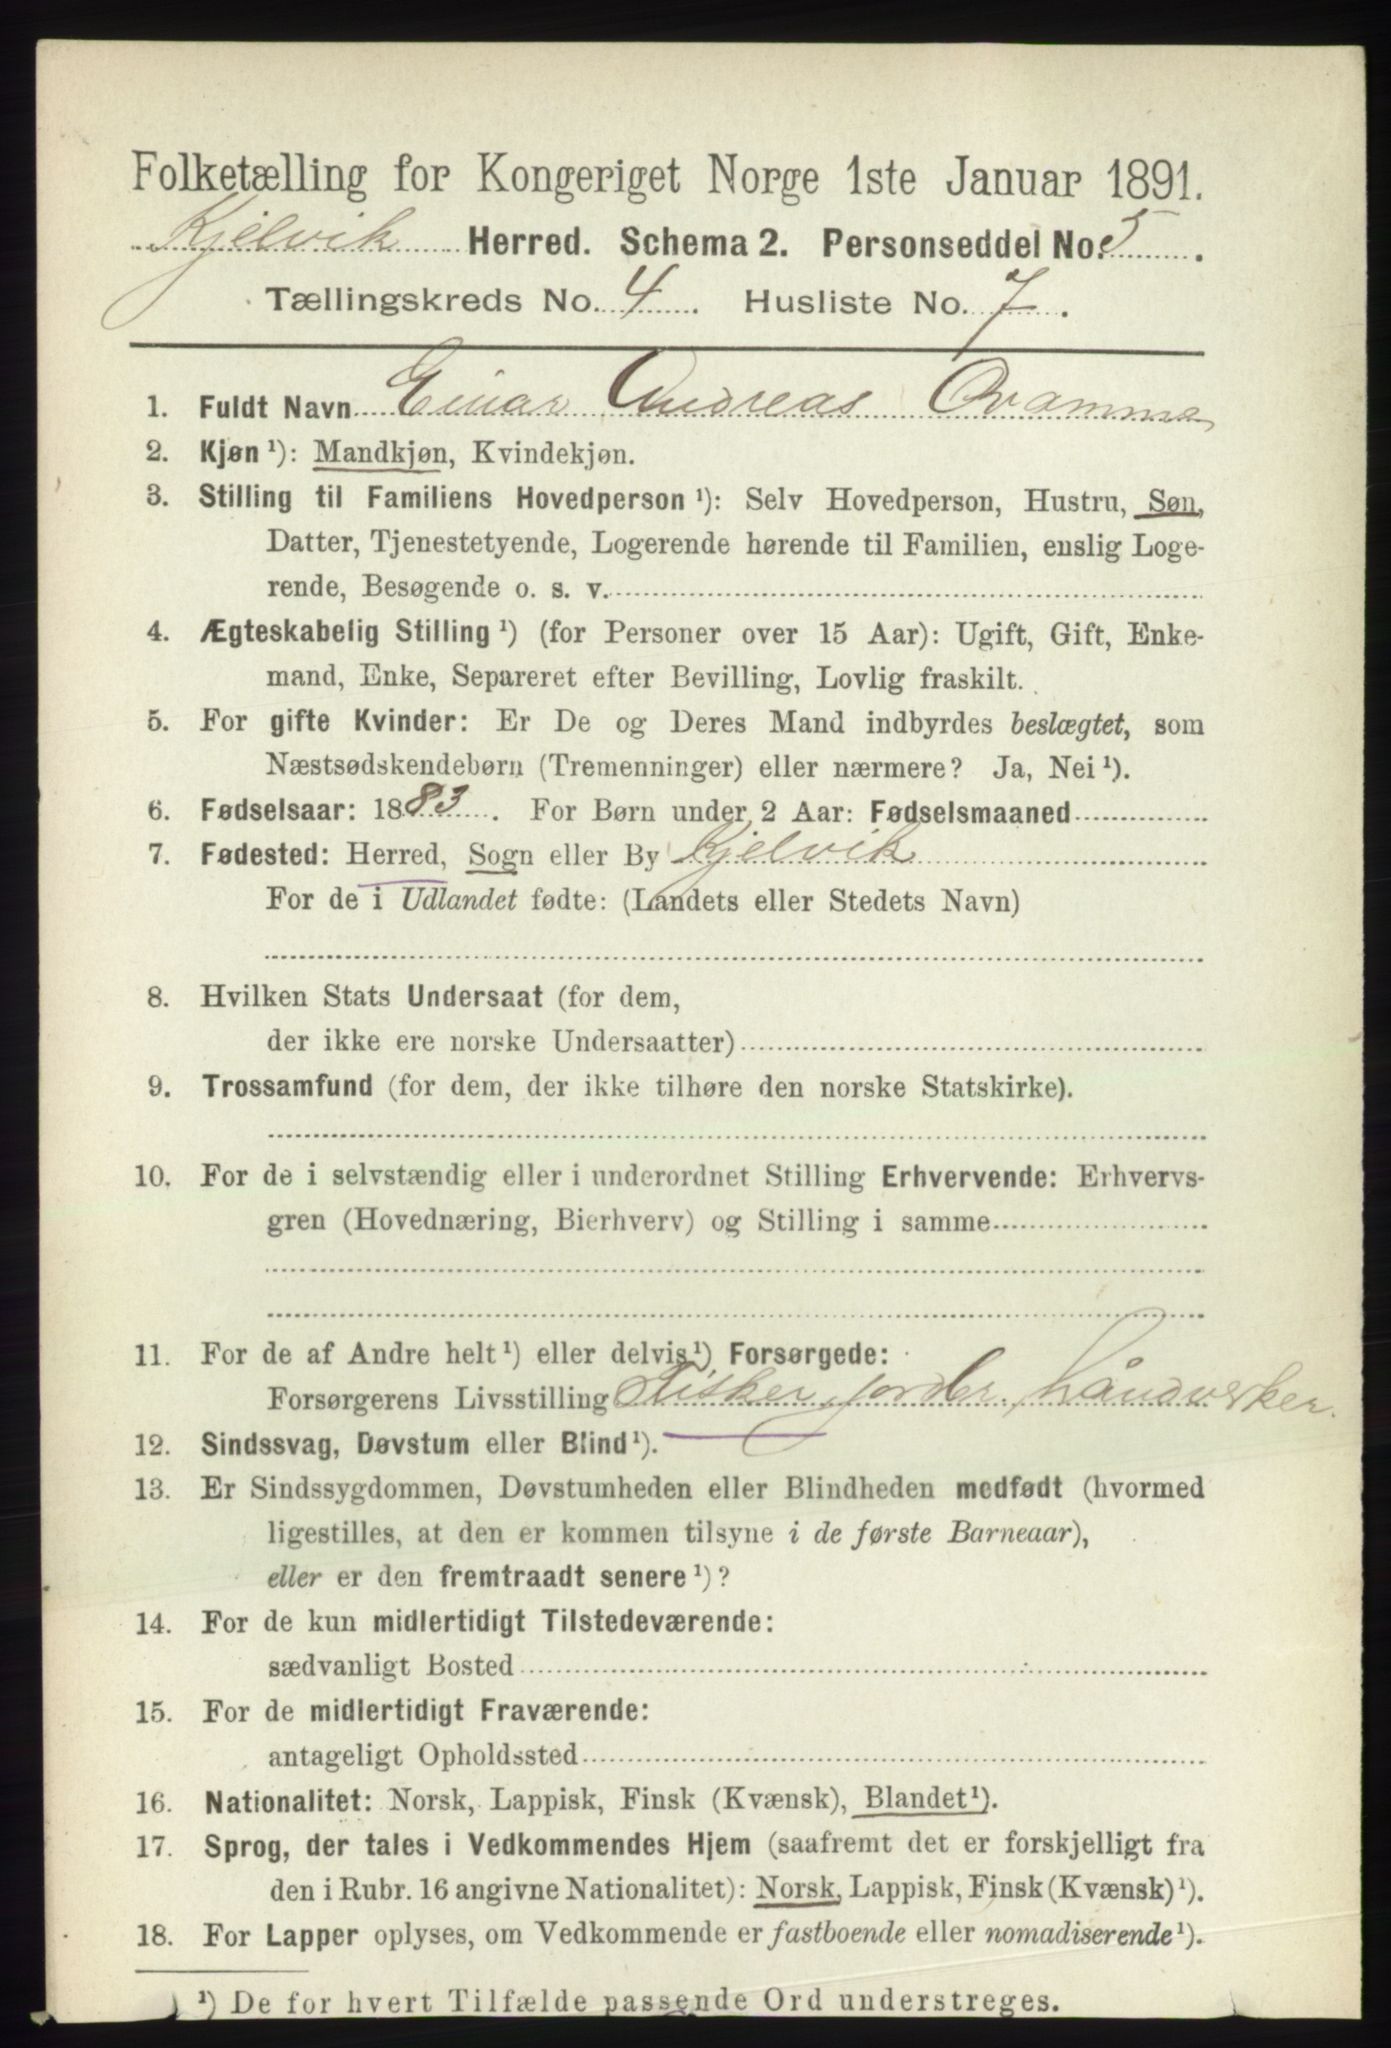 Folketælling for Kongeriget Norge 1ste Januar 1891.
Kjelvik Herred. Schema 2. Personseddel No. 5.
Tællingskreds No. 4. Husliste No. 7.
1. Fuldt Navn Einar Andreas
2. Kjøn ¹): Mandkjøn, Kvindekjøn.
3. Stilling til Familiens Hovedperson ¹): Selv Hovedperson, Hustru, Søn,
Datter, Tjenestetyende, Logerende hørende til Familien, enslig Loge-
rende, Besøgende o. s. v.
4. Ægteskabelig Stilling ¹) (for Personer over 15 Aar): Ugift, Gift, Enke-
mand, Enke, Separeret efter Bevilling, Lovlig fraskilt.
5. For gifte Kvinder: Er De og Deres Mand indbyrdes beslægtet, som
Næstsødskendebørn (Tremenninger) eller nærmere? Ja, Nei ¹).
6. Fødselsaar: 1883. For Børn under 2 Aar: Fødselsmaaned
7. Fødested: Herred, Sogn eller By Kjelvik
For de i Udlandet fødte: (Landets eller Stedets Navn)
8. Hvilken Stats Undersaat (for dem,
der ikke ere norske Undersaatter)
9. Trossamfund (for dem, der ikke tilhøre den norske Statskirke).
10. For de i selvstændig eller i underordnet Stilling Erhvervende: Erhvervs-
gren (Hovednæring, Bierhverv) og Stilling i samme
11. For de af Andre helt ¹) eller delvis ¹) Forsørgede:
Forsørgerens Livsstilling Fisker, jordbr. håndverker.
12. Sindssvag, Døvstum eller Blind ¹).
13. Er Sindssygdommen, Døvstumheden eller Blindheden medfødt (hvormed
ligestilles, at den er kommen tilsyne i de første Barneaar),
eller er den fremtraadt senere ¹)?
14. For de kun midlertidigt Tilstedeværende:
sædvanligt Bosted
15. For de midlertidigt Fraværende:
antageligt Opholdssted
16. Nationalitet: Norsk, Lappisk, Finsk (Kvænsk), Blandet ¹).
17. Sprog, der tales i Vedkommendes Hjem (saafremt det er forskjelligt fra
den i Rubr. 16 angivne Nationalitet): Norsk, Lappisk, Finsk (Kvænsk) ¹).
18. For Lapper oplyses, om Vedkommende er fastboende eller nomadiserende ¹).
¹) De for hvert Tilfælde passende Ord understreges.